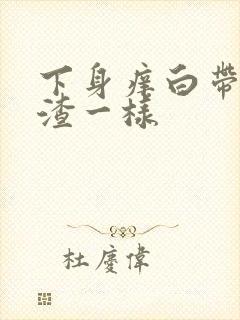 下身痒白带
渣一样
杜庆伟